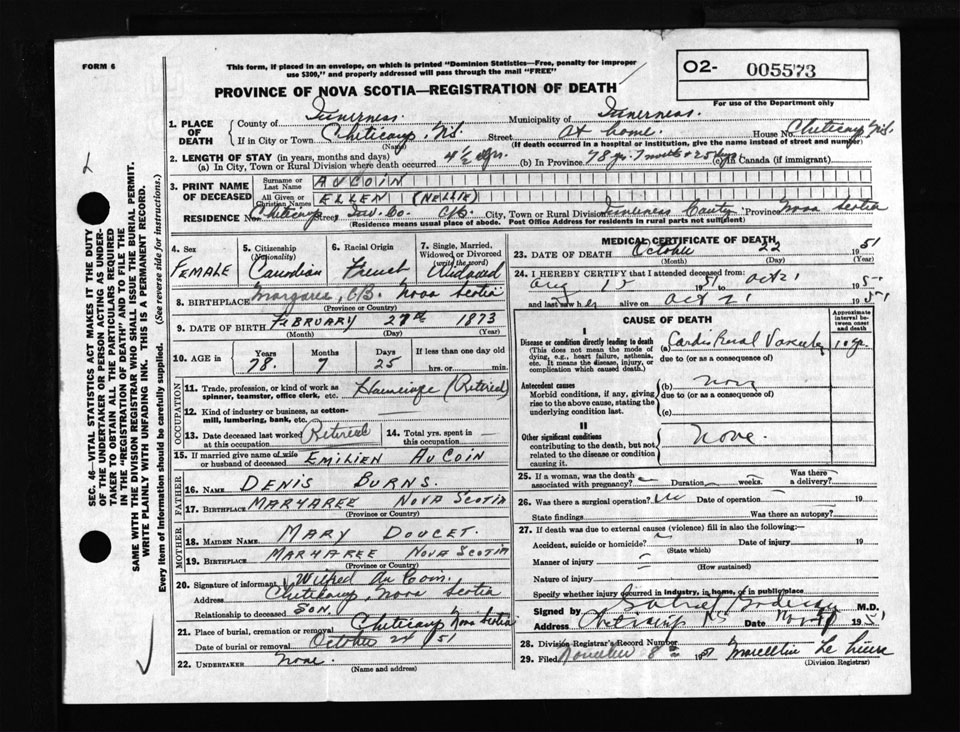 FORM 6
This form, if placed in an envelope, on which is printed "Dominion Statistics—Free, penalty for improper
use $300," and properly addressed will pass through the mail "FREE"
PROVINCE OF NOVA SCOTIA—REGISTRATION OF DEATH
O2- 005573
For use of the Department only
1. PLACE OF DEATH County of Inverness Municipality of Inverness
If in City or Town Cheticamp, N.S. Street At home. House No. Cheticamp N.S.
(Name) (If death occurred in a hospital or institution, give the name instead of street and number)
2. LENGTH OF STAY (in years, months and days)
(a) In City, Town or Rural Division where death occurred 4½ yrs. (b) In Province 78 yr. 7 mnths + 25 days (c) In Canada (if immigrant)
3. PRINT NAME OF DECEASED Surname or Last Name AUCOIN
All Given or Christian Names ELLEN (NELLIE)
RESIDENCE No. Cheticamp Street Inv. Co. C.B. City, Town or Rural Division Inverness County Province Nova Scotia
(Residence means usual place of abode. Post Office Address for residents in rural parts not sufficient)
4. Sex FEMALE
5. Citizenship (Nationality) Canadian
6. Racial Origin French
7. Single, Married, Widowed or Divorced (write the word) Widowed
8. BIRTHPLACE Margaree, C.B. Nova Scotia
(Province or Country)
9. DATE OF BIRTH FEBRUARY 27th 1873
(Month) (Day) (Year)
10. AGE in Years 78. Months 7 Days 25 If less than one day old
hrs. or min.
OCCUPATION
11. Trade, profession, or kind of work as spinner, teamster, office clerk, etc. (Retired)
12. Kind of industry or business, as cotton-mill, lumbering, bank, etc.
13. Date deceased last worked at this occupation Retired
14. Total yrs. spent in this occupation —
15. If married give name of wife or husband of deceased EMILIEN AUCOIN
FATHER
16. NAME DENIS BURNS.
17. BIRTHPLACE MARYAREE NOVA SCOTIA
(Province or Country)
MOTHER
18. MAIDEN NAME MARY DOUCET.
19. BIRTHPLACE MARYAREE NOVA SCOTIA
(Province or Country)
20. Signature of informant Wilfred Au Coin.
Address Cheticamp, Nova Scotia
Relationship to deceased SON
21. Place of burial, cremation or removal Cheticamp Nova Scotia
Date of burial or removal October 24 51
22. UNDERTAKER None.
(Name and address)
MEDICAL CERTIFICATE OF DEATH
23. DATE OF DEATH October 22 1951
(Month) (Day) (Year)
24. I HEREBY CERTIFY that I attended deceased from
Aug 1951 to Oct 21 195
and last saw h er alive on Oct 21 1951
CAUSE OF DEATH
Approximate interval between onset and death
I
Disease or condition directly leading to death (a) Cardio Renal Vascular 10 yr.
(This does not mean the mode of dying, e.g., heart failure, asthenia, etc. It means the disease, injury, or complication which caused death.)
due to (or as a consequence of)
Antecedent causes (b)
Morbid conditions, if any, giving rise to the above cause, stating the underlying condition last.
due to (or as a consequence of)
(c)
II
Other significant conditions
contributing to the death, but not related to the disease or condition causing it.
None.
25. If a woman, was the death associated with pregnancy? Duration weeks. Was there a delivery?
26. Was there a surgical operation? No Date of operation 19
State findings Was there an autopsy?
27. If death was due to external causes (violence) fill in also the following:—
Accident, suicide or homicide? Date of injury 19
(State which)
Manner of injury
(How sustained)
Nature of injury
Specify whether injury occurred in industry, in home, or in public place
Signed by M.D.
Address Cheticamp NS Date Nov 1951
28. Division Registrar's Record Number
29. Filed November 8 1951
(Division Registrar)
SEC. 46—VITAL STATISTICS ACT MAKES IT THE DUTY
OF THE UNDERTAKER OR PERSON ACTING AS UNDER-
TAKER TO OBTAIN ALL THE PARTICULARS REQUIRED
IN THE "REGISTRATION OF DEATH" AND TO FILE THE
SAME WITH THE DIVISION REGISTRAR WHO SHALL ISSUE THE BURIAL PERMIT.
WRITE PLAINLY WITH UNFADING INK. THIS IS A PERMANENT RECORD.
Every item of Information should be carefully supplied. (See reverse side for instructions.)